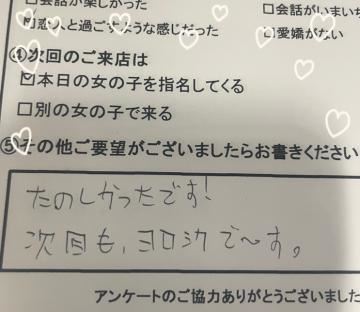 □会話が楽しかった □会話がいまいち
□恋人と過ごすような感じだった □愛嬌がない
④次回のご来店は
☑本日の女の子を指名してくる
□別の女の子で来る
⑤その他ご要望がございましたらお書きください
たのしかったです!
次回も、ヨロシクで〜す。
アンケートのご協力ありがとうございました